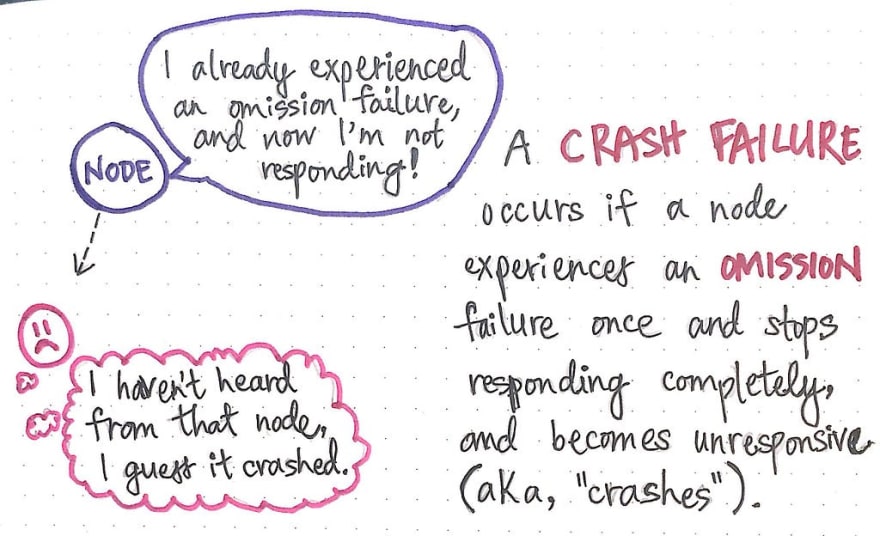 I already experienced
an omission failure,
and now I'm not
responding!
NODE
A CRASH FAILURE
occurs if a node
experiences an OMISSION
failure once and stops
responding completely,
and becomes unresponsive
(aka, "crashes").
I haven't heard
from that node,
I guess it crashed.